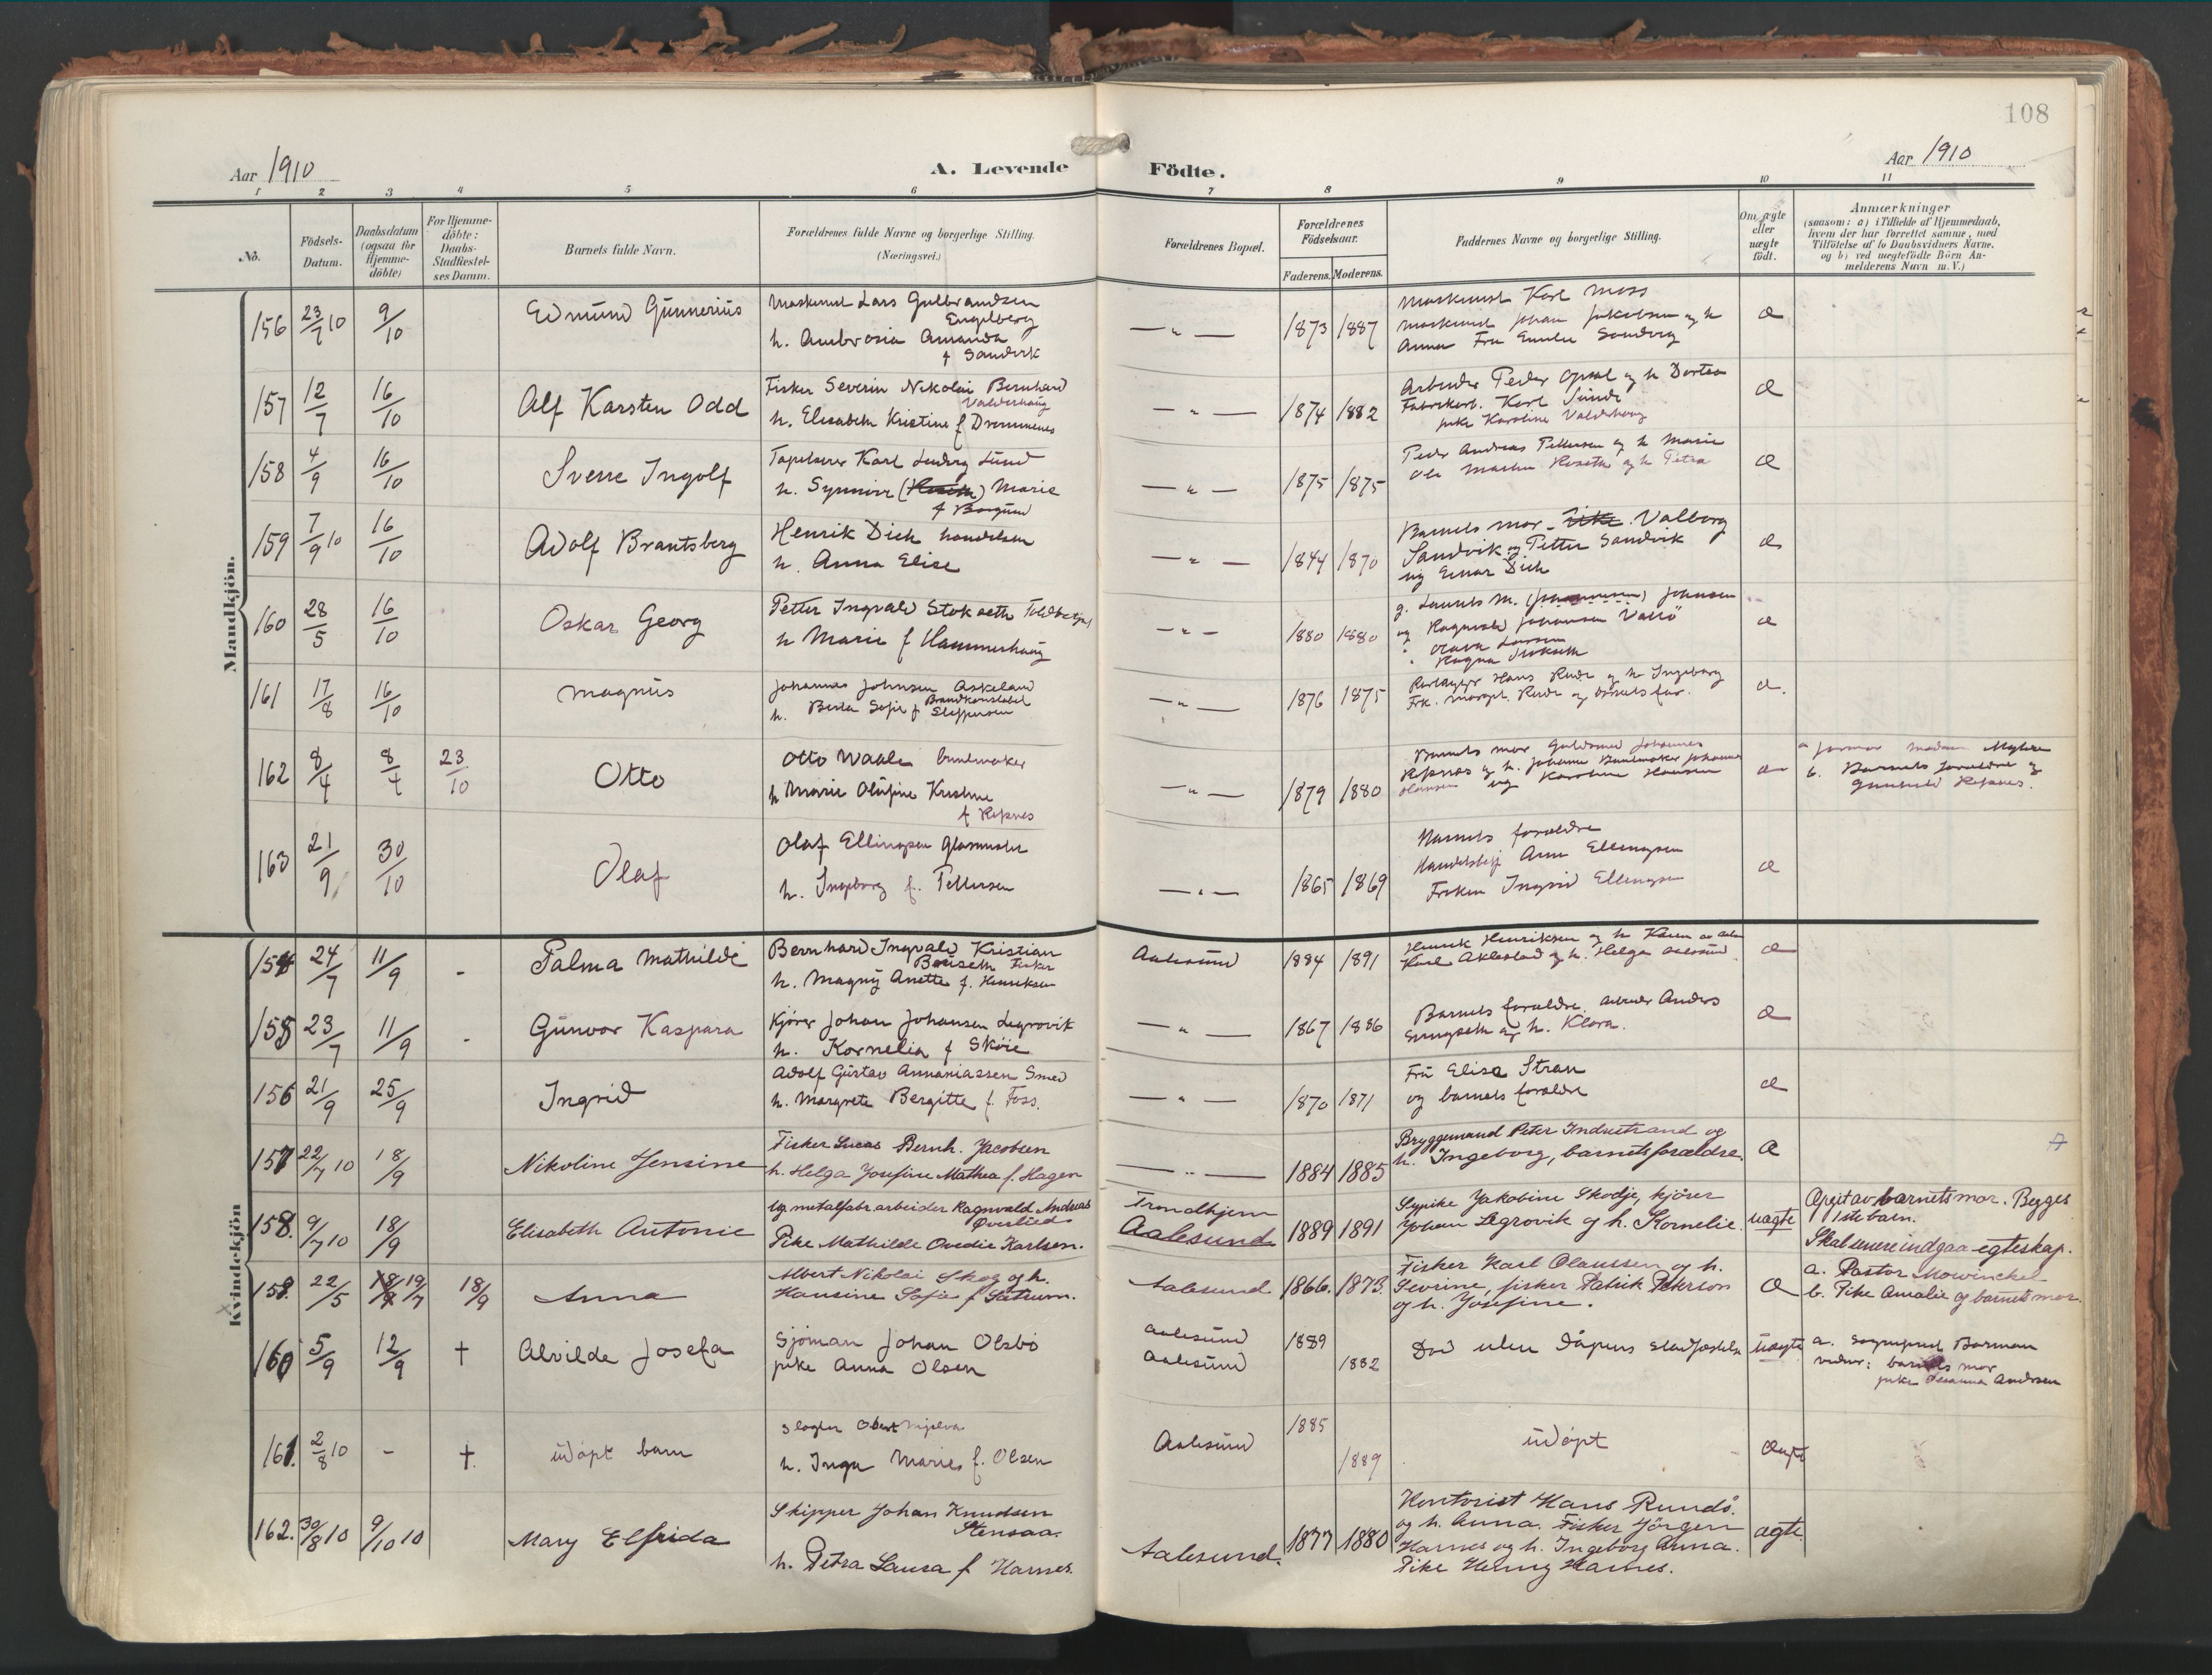 108
Aar 1910
A. Levende
Födte.
Aar 1910
1 2 3 4 5 6 7 8 9 10 11
No.
Födsels-
Datum.
Daabsdatum
(ogsaa for
Hjemme-
döbte)
For Hjemme-
döbte:
Daabs-
Stadfæstel-
ses Datum.
Barnets fulde Navn.
Forældrenes fulde Navne og borgerlige Stilling.
(Næringsvei.)
Forældrenes Bopæl.
Forældrenes
Födselsaar.
Faderens. Moderens.
Faddernes Navne og borgerlige Stilling.
Om ægte
eller
uægte
födt.
Anmærkninger
(saasom: a) i Tilfælde af Hjemmedaab,
hvem der har forrettet samme, med
Tilföielse af to Daabsvidners Navne.
og b) ved uægtefödte Börn An-
melderens Navn m. V.)
Mandkjön.
156 23/7 10 9/10 Edmund Gunnerius
Maskinist Lars Gulbrandsen
Engelberg
h. Ambrosia Amanda
f Sandvik
— " — 1873 1887
Maskinist Karl Moss
Maskinist Johan Jakobsen og h
Anna Fru Emilie Sandvig
æ
157 12/7 16/10 Alf Karsten Odd
Fisker Severin Nikolai Bernhard
Valderhaug
h. Elisabeth Kristine f Drommenes
— " — 1874 1882
Arbeider Peder Opsal og h Dortea
Fabrikarb. Karl Sunde
pike Karoline Valderhaug
æ
158 4/9 16/10 Sverre Ingolf
Tapetserer Karl Ludvig Lund
h. Synnøve Marie
f Borgund
— " — 1875 1875
Peder Andreas Pettersen og h Marie
Ole Martin Roseth og h Petra
æ
159 7/9 10 16/10 Adolf Brantsberg
Henrik Dick handelsm
h. Anna Elise
— " — 1844 1870
Barnets mor Valborg
Sandvik og Petter Sandvik
og Einar Dick
æ
160 28/5 16/10 Oskar Georg
Petter Ingvald Stokseth Toldbetjent
h Marie f Hammerhaug
— " — 1880 1880
g. Laurits M. Johansen
og Ragnvald Johansen Valø
" Larsen
" Ragna
æ
161 17/8 16/10 Magnus
Johannes Johnsen Askeland
Brandkonstabel
h. Berta Sofie f Steffensen
— " — 1876 1875
Hans Rude og h Ingeborg
Frk. Margit Rude og barnets far.
æ.
162 8/4 8/4 23/10 Otto
Otto Waale buntmaker
h Marie Olufine Kristine
f Refsnes
— " — 1879 1880
Barnets mor Guldsmed Johannes
Refsnes og h. Johanne Buntmaker Johannes
Hansen og Karoline Hansen
æ
a Jormor madam Myhre
b. Barnets foraldre og
Gunhild Refsnes.
163 21/9 30/10 Olaf
Olaf Ellingsen glasmester
h. Ingeborg f. Pettersen
— " — 1865 1869
Barnets foraldre
Handelsbetj Arne Ellingsen
Frøken Ingrid Ellingsen
æ
Kvindekjön
154 24/7 11/9 - Palma Mathilde
Bernhard Ingvald Kristian
Bøiseth Fisker
h. Magny Anette f. Henriksen
Aalesund 1884 1891
Henrik Henriksen og h Karen
Karl Aklestad og h. Helga Aalesund.
æ
155 23/7 11/9 - Gunvor Kaspara
Kjører Johan Johansen Legrovik
h. Kornelia f Skøie
— " — 1867 1886
Barnets foraldre. Arbeider Anders
og h. Klara.
æ
156 21/9 25/9 Ingrid
Adolf Gustav Annaniassen Smed
h. Margrete Bergitte f. Foss.
— " — 1870 1871
Fru Elise Stran
og barnets foraldre
æ
157 22/7 10 18/9 Nikoline Jensine
Fisker Lucas Bernh. Jacobsen
h. Helga Josefine Mathea f. Hagen
— " — 1884 1885
Bryggemand Peter Indrestrand og
h. Ingeborg, barnets forældre.
æ
158. 9/7 10 18/9 Elisabeth Antonie
Ug metalfabr.arbeider Ragnvald Andreas
Overlied
Pike Mathilde Ovedie Karlsen.
Trondhjem
Aalesund 1889 1891
Sypike Jakobine Skodje, kjører
Johan Legrovik og h. Kornelie.
uægte
Opgit av barnets mor. Begges
1ste barn.
Skal senere indgaa egteskap.
159. 22/5 18/9 19/7 18/9 Anna
Albert Nikolai Skog og h.
Hansine Sofie f Sætrum.
Aalesund 1866. 1873.
Fisker Karl Olaussen og h.
Severine, fisker Patrik Peterson
og h. Josefine.
æ
a. Pastor Mowinckel
b. Pike Amalie og barnets mor.
160 5/9 12/9 † Alvilde Josefa
Sjöman Johan Olsbö
pike Anna Olsen
Aalesund 1889
Aalesund 1882
Död uten dåpens stadfæstelse
uægte
a. Sogneprest Barman
vidner: barnets mor
pike Susanna Andresen
161. 2/8 10 - † udöpt barn
Slagter Obert Mjelva
h. Inga Marie f. Olsen
Aalesund 1885
1889
udöpt
Ægte
162. 30/8 10 9/10 10 Mary Elfrida
Skipper Johan Knudsen
Stensaa.
h. Petra Laura f Harnes.
Aalesund. 1877 1880
Kontorist Hans Rundø.
og h. Anna. Fisker Jörgen
Harnes og h. Ingeborg Anna.
Pike Henny Harnes.
ægte